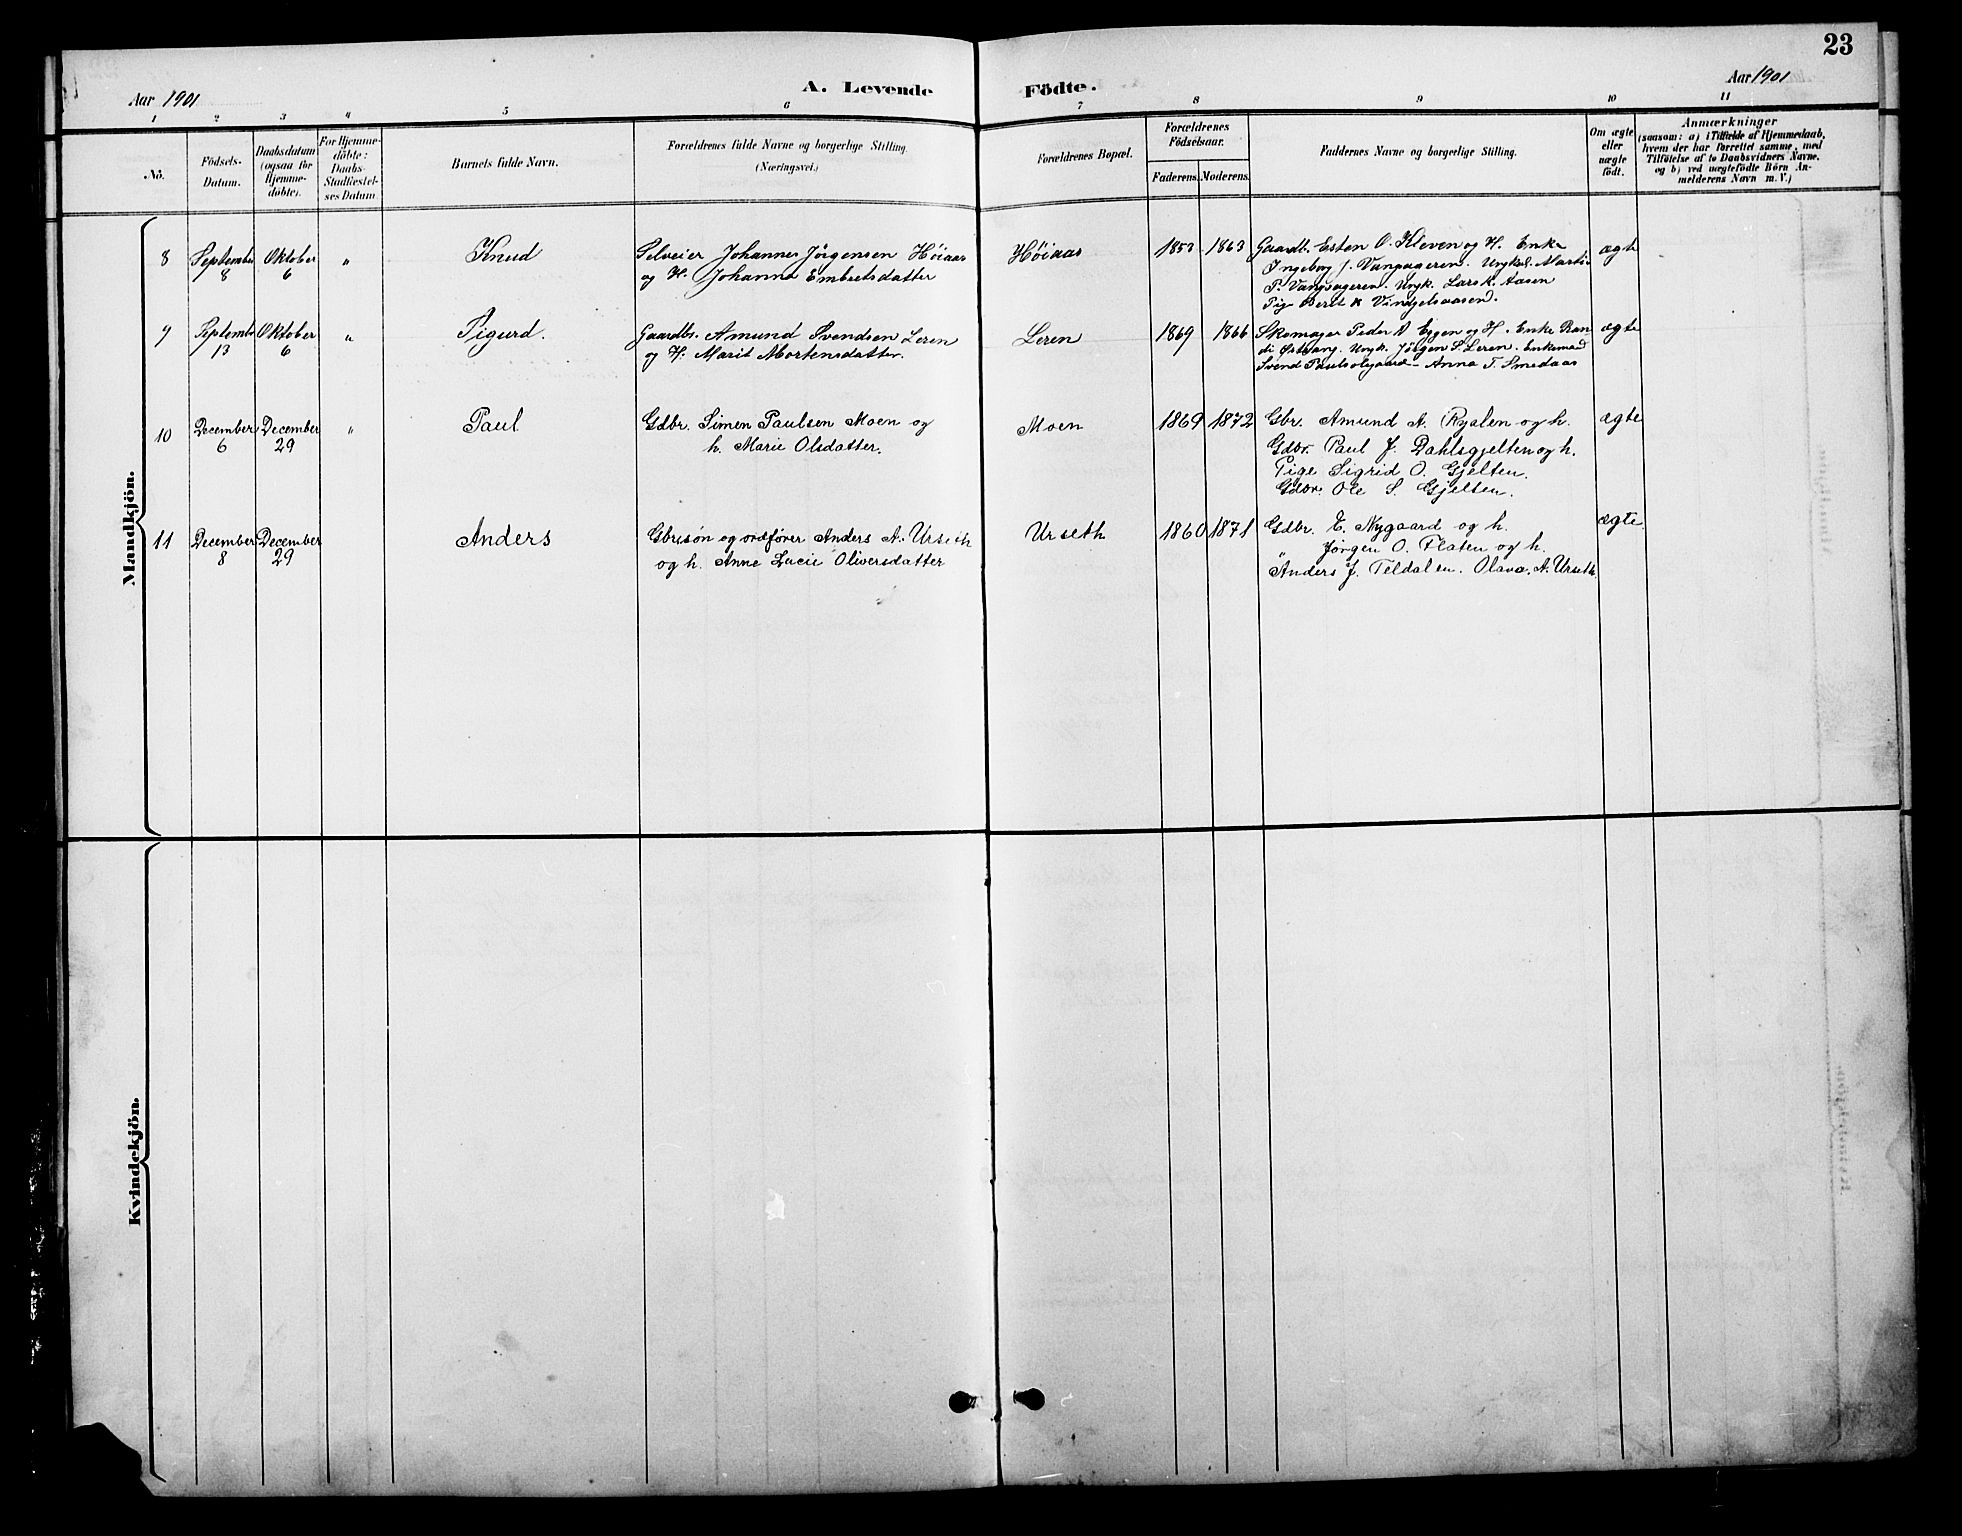 23
Aar 1901
A. Levende Födte.
Aar 1901
1 2 3 4 5 6 7 8 9 10 11
No.
Födsels-
Datum.
Daabsdatum
(ogsaa for
Hjemme-
döbte).
For Hjemme-
döbte:
Daabs-
Stadfæstel-
ses Datum
Barnets fulde Navn.
Forældrenes fulde Navne og borgerlige Stilling.
(Næringsvei.)
Forældrenes Bopæl.
Forældrenes
Födselsaar.
Faderens. Moderens.
Faddernes Navne og borgerlige Stilling.
Om ægte
eller
uægte
födt.
Anmærkninger
(saasom: a) i Tilfælde af Hjemmedaab,
hvem der har forrettet samme, med
Tilföielse af to Daabsvidners Navne.
og b) ved uægtefödte Börn An-
melderens Navn m. V.)
Mandkjön.
8 September 8 Oktober 6 " Knud
Selveier Johannes Jörgensen Höiaas
og H. Johanna Embretsdatter
Höiaas 1853 1863
Gaardb. Esten O. Kleven og H. Enke
Ingeborg J. Vangsgeren. Ungkl. Martin
P. Vangsgeren. Ungk. Lars K. Aasen
Pige Beret K Vingelsaasen.
ægte
9 September 13 Oktober 6 " Sigurd.
Gaardbr. Amund Svendsen Leren
og H. Marit Mortensdatter.
Leren 1869 1866
Skomager Peder A Eggen og H. Enke Ran
di Østvang. Ungk. Jörgen S. Leren. Enkemand
Svend Paulsølgaard - Anna T. Smedaas
ægte
10 December 6 December 29 " Paul
Gdbr. Simen Paulsen Moen og
h. Marie Olsdatter.
Moen 1869 1872
Gbr. Amund A. Ryalen og h.
Gdbr. Paul J. Dahlsgjelten og h.
Pige Sigrid O. Gjelten.
Gdbr. Ole S. Gjelten.
ægte
11 December 8 December 29 Anders
Gbrusön og ordfører Anders A. Urseth
og h. Anne Lucie Oliversdatter
Urseth 1860 1871
Gdbr. E. Nygaard og h.
" Jørgen O. Floten og h.
Anders J. Teldalen. Olava. A. Urseth.
ægte.
Kvindekjön.